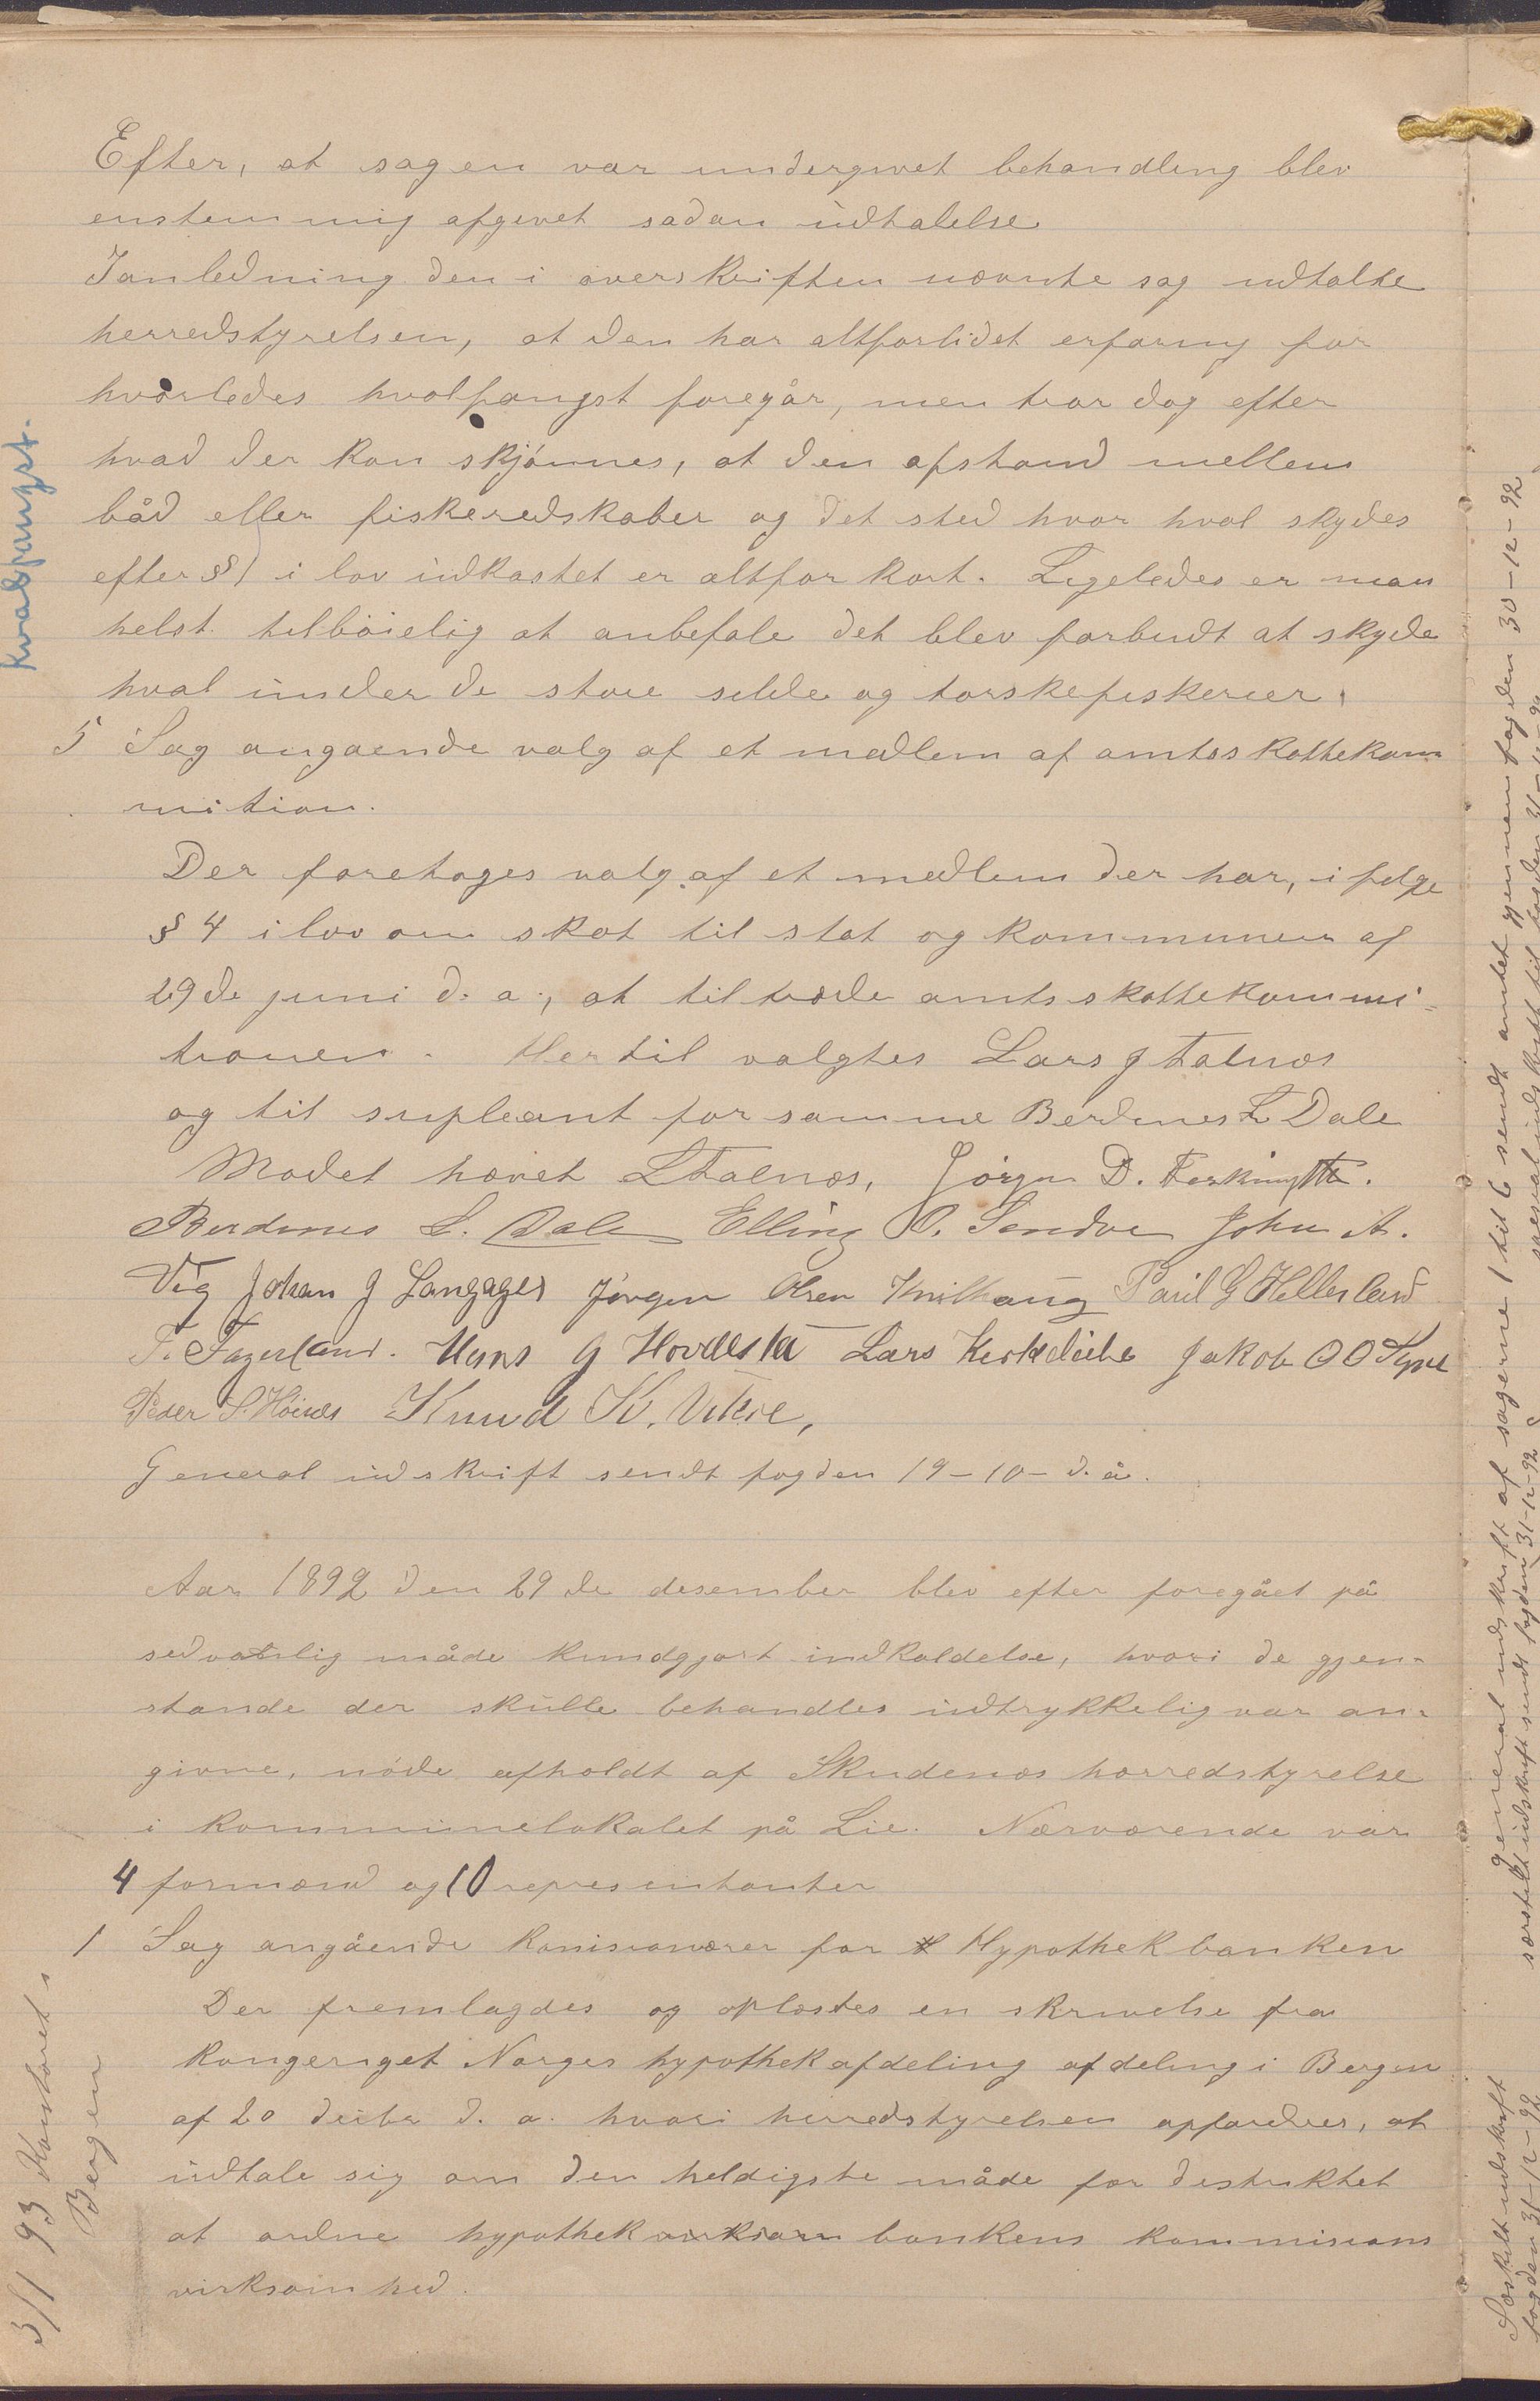 Efter, at sagen var undergivet behandling blev
enstemmig afgivet sadan udtalelse
I anledning den i overskriften nævnte sag udtalte
herredstyrelsen, at den har altforlidet erfaring for
hvorledes hvalfangst foregår, men tror dog efter
hvad der kan skjönnes, at den afstand mellem
båd eller fiskeredskaber og det sted hvor hval skydes
efter § 1 i lov udkastet er altfor kort. Ligeledes er man
helst tilböielig at anbefale det blev forbudt at skyde
hval under de store silde og torskefiskerier.
Kvalfangst.
5 Sag angaende valg af et medlem af amtsskattekom
mition.
Der foretoges valg af et medlem der har, i følge
§ 4 i lov om skat til stat og kommunen af
29de juni d. a., at tiltræde amtsskattekommi-
tionen. Hertil valgtes Lars J Falnæs
og til supleant for samme Berdines L Dale
Mødet hævet L Falnæs, Jörgen D. Ferkingsta.
Berdines L. Dale Elling O. Sandve John A.
Vig Johan J Langåger Jörgen Olsen Kvilhaug Paul G Hellesland
T. Fagerland. Hans J Hovdesta Lars Kirkeleite Jakob O O Syre
Peder S. Höines Knud K. Vikre,
General udskrift sendt fogden 19-10- d. å.
Aar 1892 den 29de desember blev efter foregået på
sedvanlig måde kundgjort indkaldelse, hvori de gjen-
stande der skulle behandles udtrykkelig var an-
givne, möde afholdt af Skudenæs herredstyrelse
i kommunelokalet på Lie. Nærværende var
4 formænd og 10 representanter
1 Sag angående komisionærer for Hypothekbanken
Der fremlagdes og oplæstes en skrivelse fra
kongeriget Norges hypothekafdeling afdeling i Bergen
af 20 desbr d. a. hvori herredstyrelsen opfordres, at
udtale sig om den heldigste måde for destriktet
at ordne hypothek virksom bankens kommisions
virksomhed.
5/1 93 Kontoret i
Bergen
general udskrift af sagerne 1 til 6 sendt amtet gjennem fogden 30-12-92
særskilt udskrift sendt fogden 31-12-92
Særskilt udskrift
fogden 31-12-92